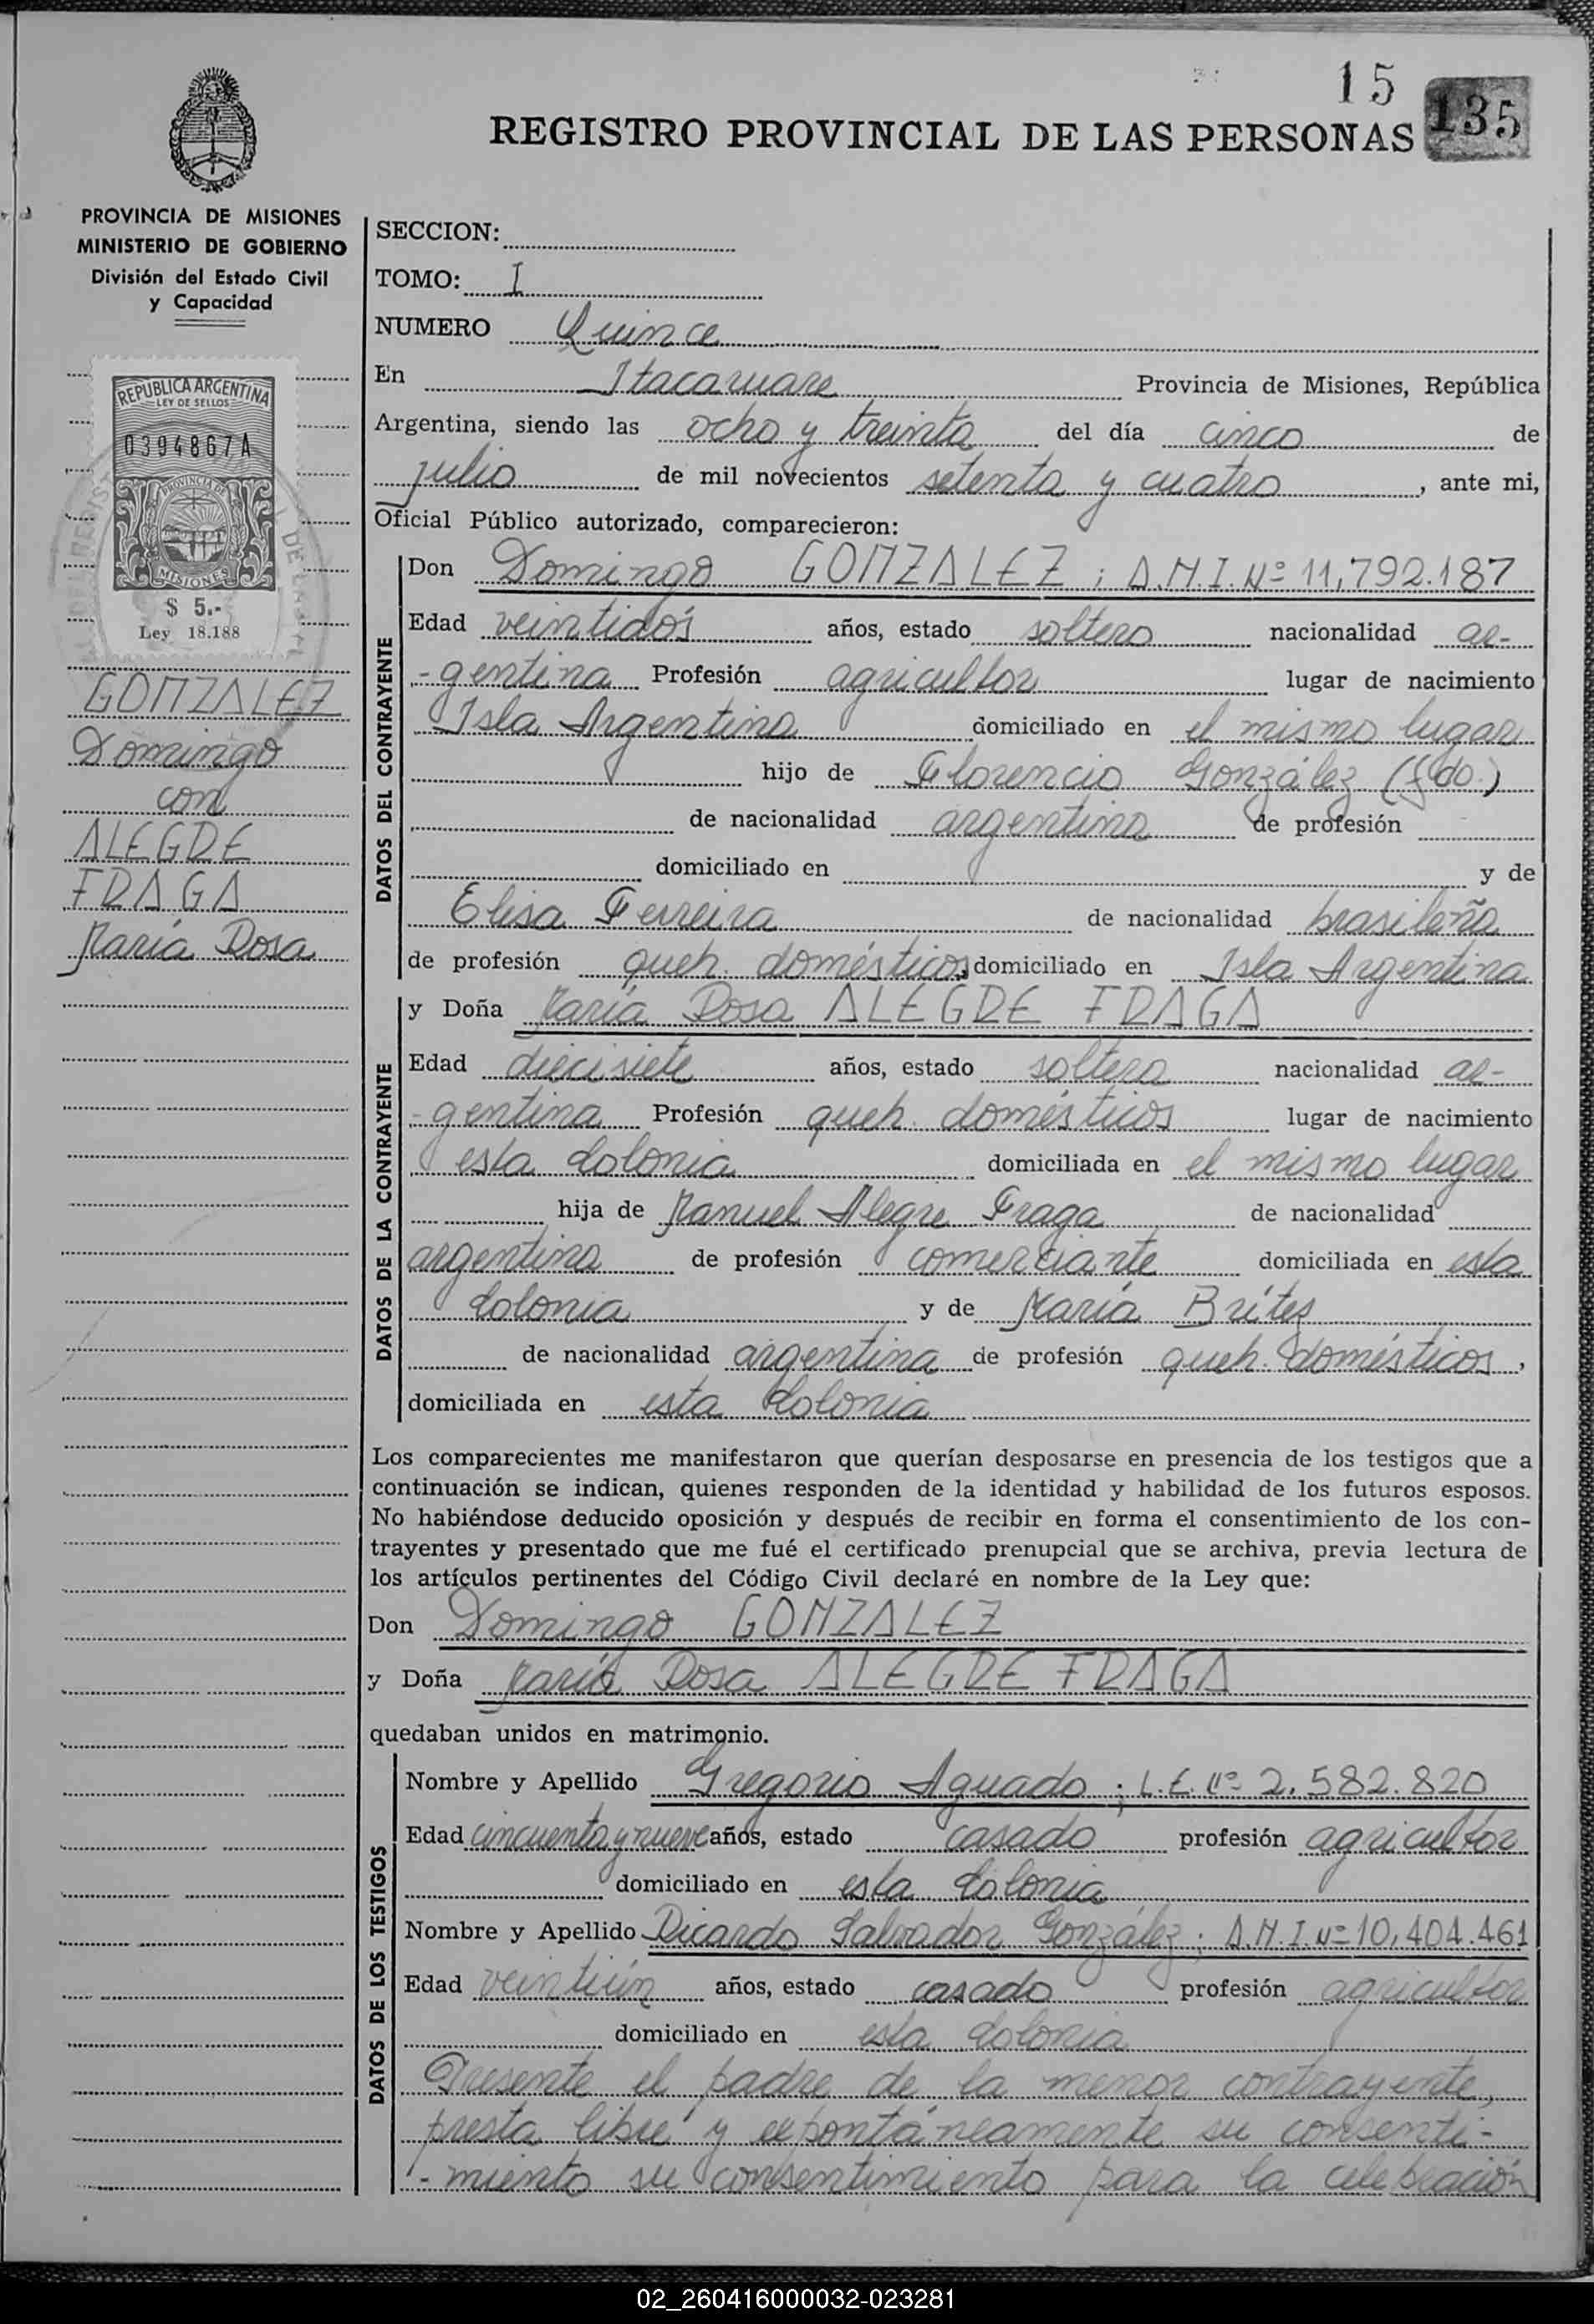 15
135
REGISTRO PROVINCIAL DE LAS PERSONAS
PROVINCIA DE MISIONES
MINISTERIO DE GOBIERNO
División del Estado Civil
y Capacidad
REPUBLICA ARGENTINA
LEY DE SELLOS
0394867A
PROVINCIA DE
MISIONES
$ 5.-
Ley 18.188
GONZALEZ
Domingo
con
ALEGRE
FRAGA
María Rosa
SECCION:
TOMO: I
NUMERO Quince
En Itacaruare Provincia de Misiones, República
Argentina, siendo las ocho y treinta del día cinco de
julio de mil novecientos setenta y cuatro, ante mi,
Oficial Público autorizado, comparecieron:
DATOS DEL CONTRAYENTE
Don Domingo GONZALEZ; D.N.I. Nº 11,792.187
Edad veintidós años, estado soltero nacionalidad ar-
-gentina Profesión agricultor lugar de nacimiento
Isla Argentina domiciliado en el mismo lugar
hijo de Florencio González (fdo.)
de nacionalidad argentina de profesión
domiciliado en y de
Elisa Ferreira de nacionalidad brasileña
de profesión queh. domésticos domiciliado en Isla Argentina
DATOS DE LA CONTRAYENTE
y Doña María Rosa ALEGRE FRAGA
Edad diecisiete años, estado soltera nacionalidad ar-
-gentina Profesión queh. domésticos lugar de nacimiento
esta Colonia domiciliada en el mismo lugar
hija de Manuel Alegre Fraga de nacionalidad
argentina de profesión comerciante domiciliada en esta
Colonia y de María Britez
de nacionalidad argentina de profesión queh. domésticos,
domiciliada en esta Colonia
Los comparecientes me manifestaron que querían desposarse en presencia de los testigos que a
continuación se indican, quienes responden de la identidad y habilidad de los futuros esposos.
No habiéndose deducido oposición y después de recibir en forma el consentimiento de los con-
trayentes y presentado que me fué el certificado prenupcial que se archiva, previa lectura de
los artículos pertinentes del Código Civil declaré en nombre de la Ley que:
Don Domingo GONZALEZ
y Doña María Rosa ALEGRE FRAGA
quedaban unidos en matrimonio.
DATOS DE LOS TESTIGOS
Nombre y Apellido Gregorio Aguado; L.E. Nº 2.582.820
Edad cincuenta y nueve años, estado casado profesión agricultor
domiciliado en esta Colonia
Nombre y Apellido Ricardo Salvador González; D.N.I. Nº 10,404.461
Edad veintiún años, estado casado profesión agricultor
domiciliado en esta Colonia
Presente el padre de la menor contrayente,
presta libre y espontáneamente su consenti-
-miento su consentimiento para la celebración
02_260416000032-023281